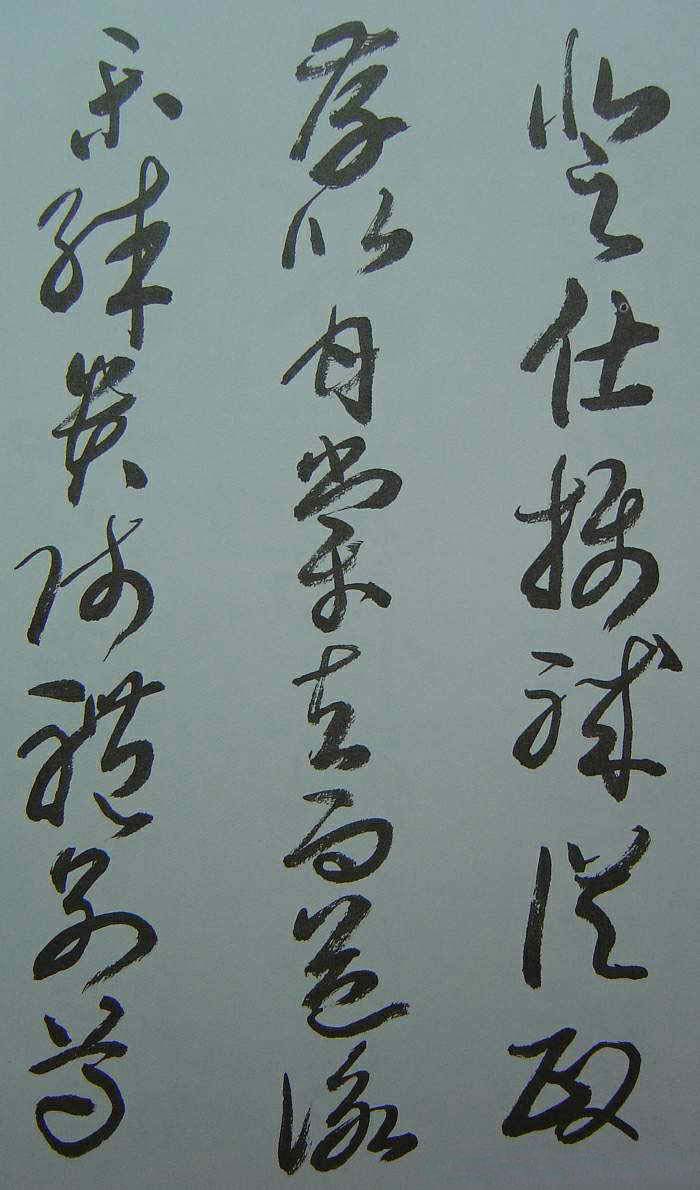 登仕摄職従政
存以甘棠去而益詠
樂殊貴賤禮別尊